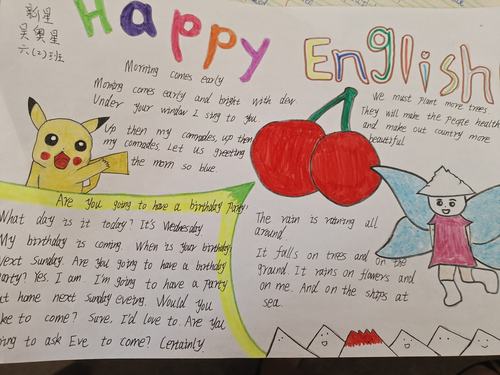 新星
吴奥星
六(2)班
Happy
English
Morning comes early
Morning comes early and bright with dew.
Under your window I sing to you.
Up then my comrades, up then
my comrades. Let us greeting
the morn so blue.
We must plant more trees
They will make the people health
and make out country more
beautiful
Are you going to have a birthday Party?
What day is it today? It's Wednesday
My birthday is coming. When is your birthday
Next Sunday. Are you going to have a birthday
Party? Yes. I am. I'm going to have a Party
at home next Sunday eveing. Would you
ke to come? Sure. I'd love to. Are you
ing to ask Eve to come? Certainly.
The rain is raining all
around.
It falls on trees and on the
ground. It rains on flowers and
on me. And on the ships at
sea.